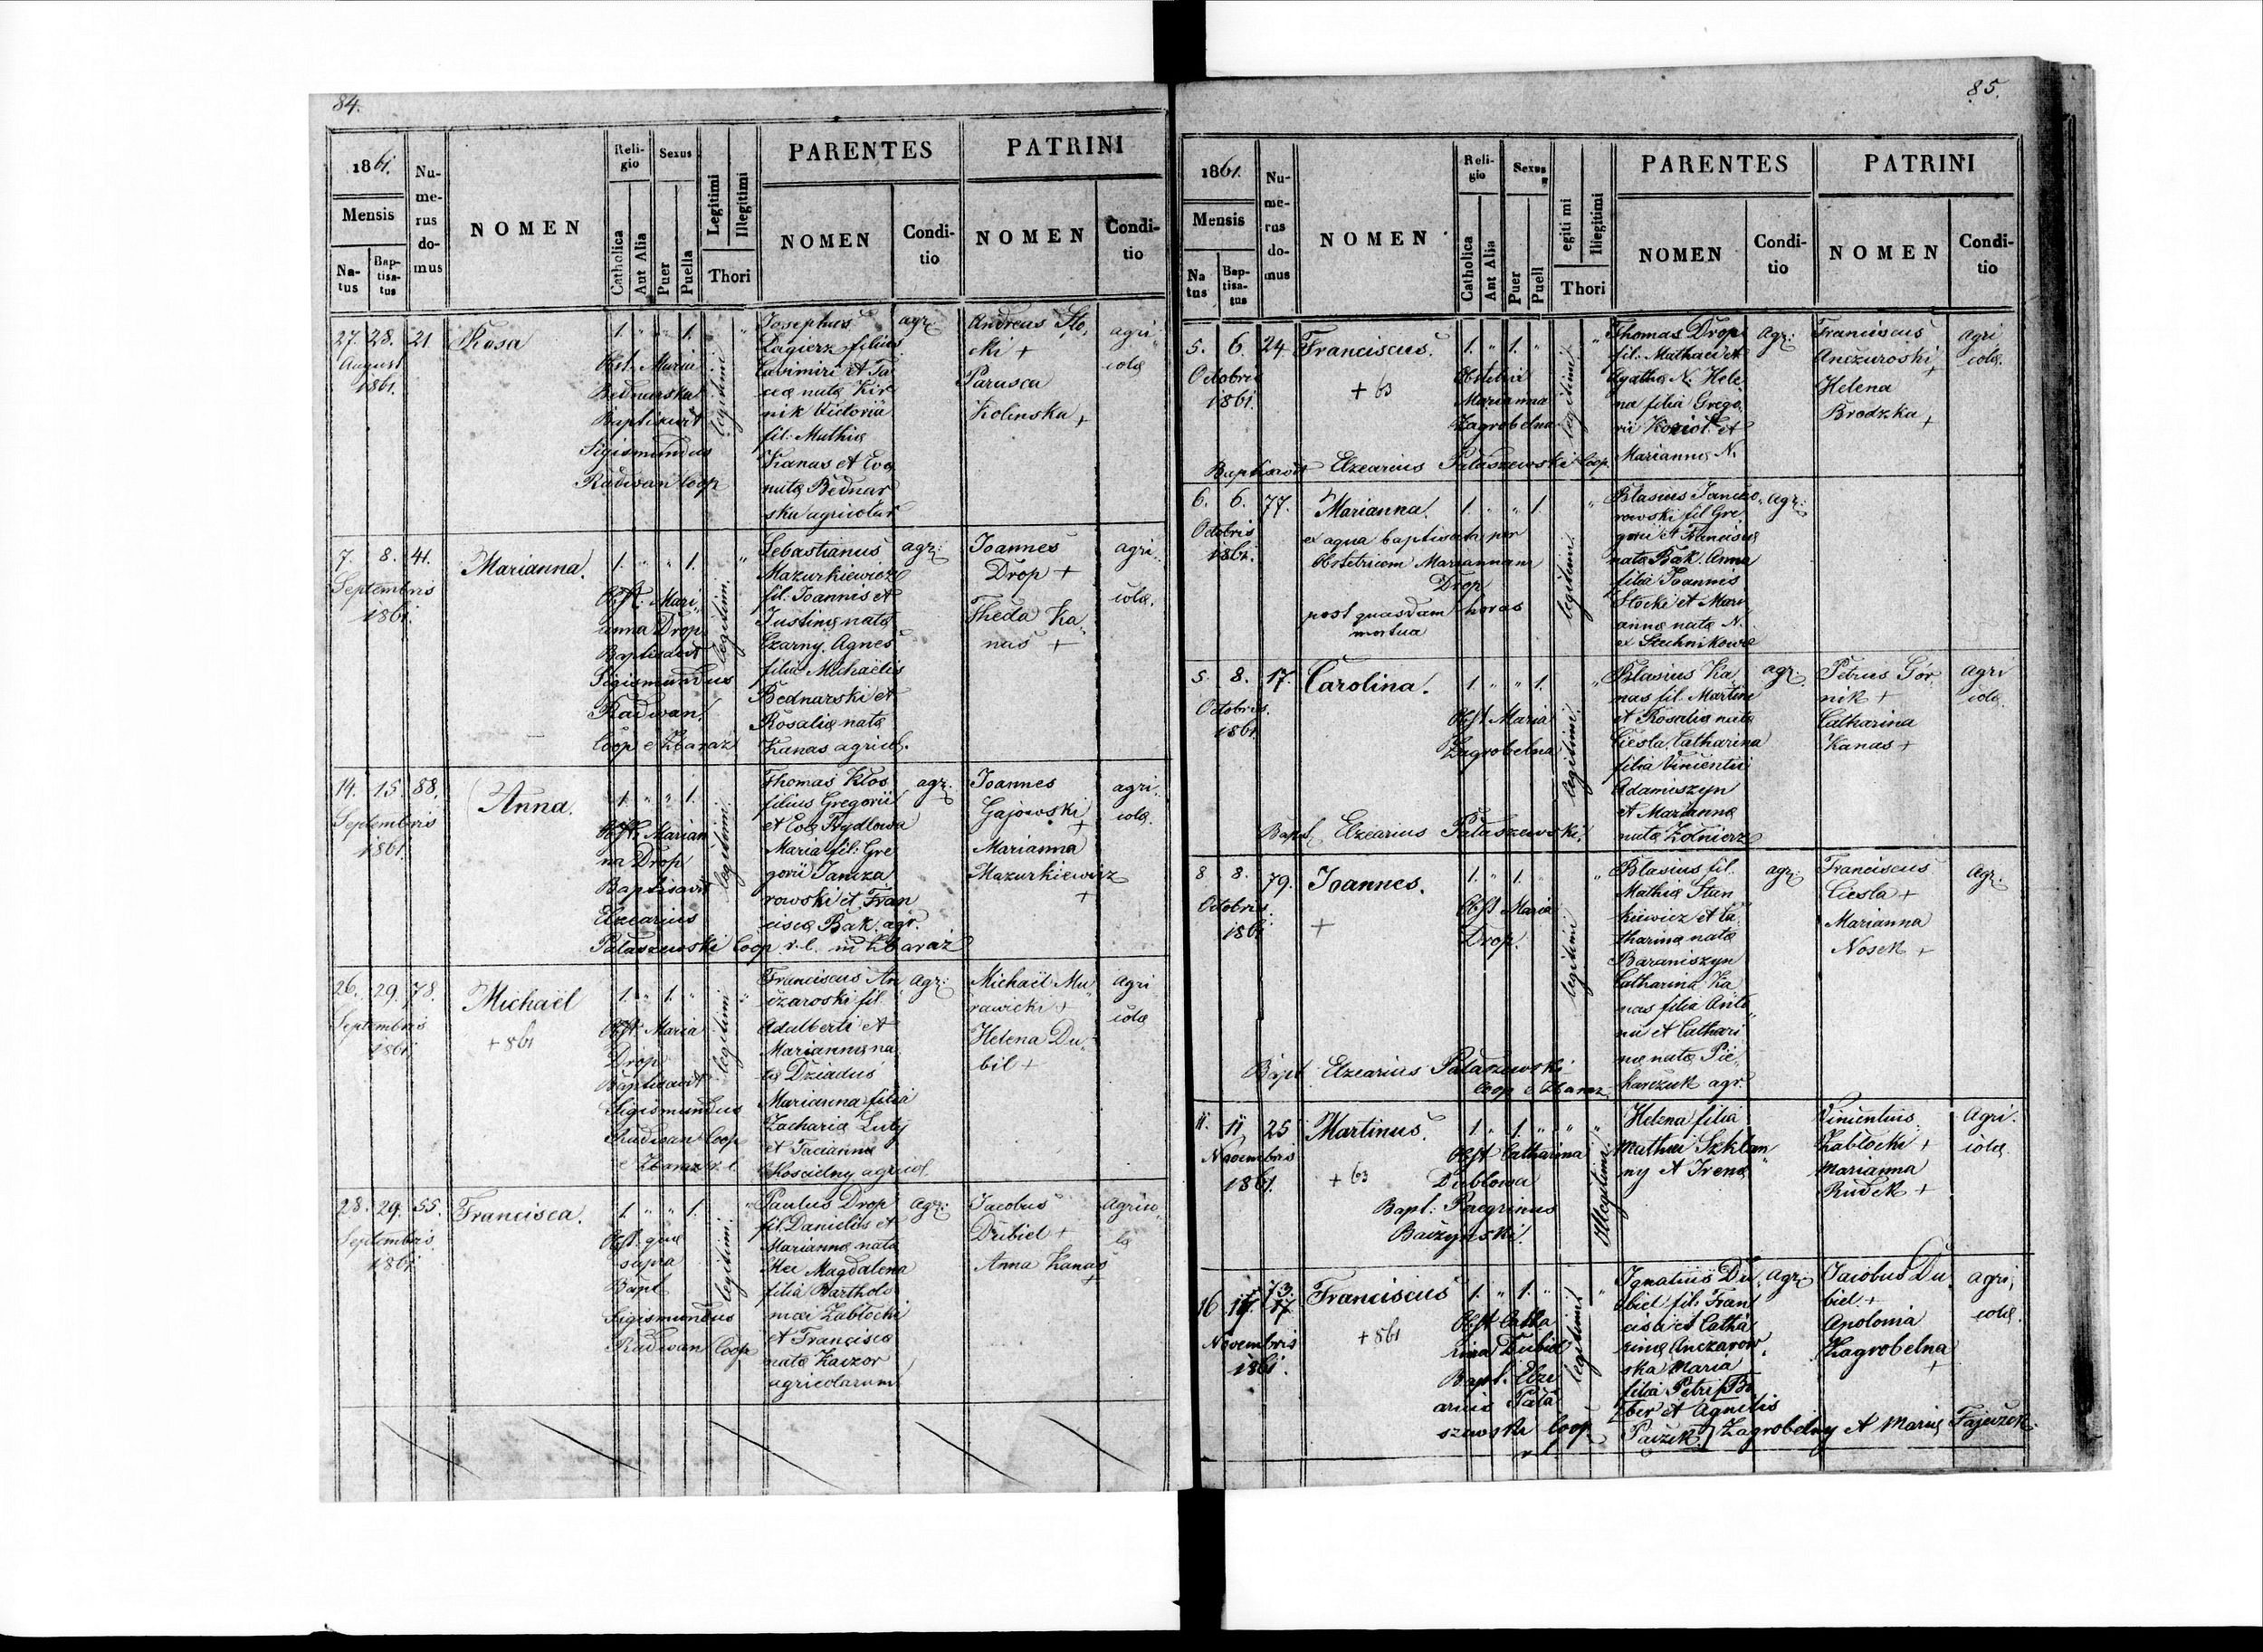 84.
1861.
Mensis
Na-
tus
Bap-
tisa-
tus
Nu-
me-
rus
do-
mus
NOMEN
Reli-
gio
Catholica
Aut Alia
Sexus
Puer
Puella
Legitimi
Illegitimi
Thori
PARENTES
NOMEN
Condi-
tio
PATRINI
NOMEN
Condi-
tio
27. 28. 21
August
1861.
Rosa
1. " " 1.
Obst. Maria
Bednarska
Baptisavit
Sigismundus
Radwan Coop
legitimi
Josephus
Lagierz filius
Casimiri et
nata
nik Victoria
fil: Mathiæ
Kanas et Eva
nata Bednar
ska agricolar
agr:
Andreas Sto,
cki +
Parasca
Kolinska +
agri
colæ
7. 8. 41.
Septembris
1861.
Marianna.
1. " " 1.
Obst: Mari,
anna Drop
Baptisavit
Sigismundus
Radwan
Coop e Zbaraż
legitimi.
Sebastianus
Mazurkiewicz
fil: Joannis et
Justinæ nata
Czarny. Agnes
filia Michaëlis
Bednarski et
Rosaliæ nata
Kanas agricol.
agr:
Joannes
Drop +
Theda Ka,
nas +
agri,
colæ.
14. 15. 88.
Septembris
1861.
Anna.
1. " " 1.
Obst: Marian
na Drop
Baptisavit
Elzearius
Pałaszewski Coop r. l. in Zbaraż
legitimi.
Thomas Kłos
filius Gregorii
et Eva Rydlowa
Maria fil: Gre
gorii Jancza
rowski et Fran
cisca Bak. agr.
agr:
Joannes
Gajowski
+
Marianna
Mazurkiewicz
+
agri,
colæ.
26. 29. 78.
Septembris
1861.
Michaël
+ 861
1. " 1. "
Obst Maria
Drop
Baptisavit
Sigismundus
Radwan Coop
e Zbaraż r. l
legitimi
Franciscus An
czaroski fil
Adalberti et
Mariannæ na
ta Dziadus
Marianna filia
Zachariæ Luty
et Tacianna
Kościelny agricol
agr:
Michaël Mu
rawicki +
Helena Du,
bil +
agri
colæ
28. 29. 55.
Septembris
1861.
Francisca.
1. " " 1.
Obst. quæ
supra
Bapt
Sigismundus
Radwan Coop
legitimi.
Paulus Drop
fil. Danielis et
Mariannæ nata
Magdalena
filia Bartholo
mæi Zabłocki
et Francisca
nata Kaczor
agricolarum
agr:
Jacobus
Dubiel +
Anna Kanas
+
agrico,
læ
85.
1861.
Mensis
Na
tus
Bap-
tisa-
tus
Nu-
me-
rus
do-
mus
NOMEN
Reli-
gio
Catholica
Aut Alia
Sexus
Puer
Puell
egiti mi
Illegitimi
Thori
PARENTES
NOMEN
Condi-
tio
PATRINI
NOMEN
Condi-
tio
5. 6. 24
Octobris
1861.
Franciscus.
+ 63
1. " 1. "
Obstetrix
Marianna
Zagrobelna
Baptisavit Elzearius Pałaszewski Coop.
legitimi
Thomas Drop
fil: Mathæi et
Agatha N. Hele
na filia Grego,
rii Kozioł et
Marianna N.
agr:
Franciscus
Anczuroski
+
Helena
Brodzka +
agri
colæ.
6. 6. 77.
Octobris
1861.
Marianna.
ex aqua baptisata per
Obstetricem Mariannam
Drop
post quasdam horas
mortua
1. " " 1.
legitimi.
Blasius Jancza
rowski fil Gre
gorii et Francisca
nata Bak. Anna
filia Joannes
Stocki et Mari
anna nata N.
ex Stechnikowce
agr:
5. 8. 17.
Octobris.
1861
Carolina.
1. " " 1.
Obst Maria
Zagrobelna
Bapt Elzearius Pałaszewski.
legitimi.
Blasius Ka
nas fil. Martini
et Rosalia nata
Ciesla Catharina
filia Vincentii
Adamiszyn
et Marianna
nata Żołnierz
agr.
Petrus Gór
nik +
Catharina
Kanas +
agri
colæ.
8. 8. 79.
Octobris.
1861
Joannes.
+
1. " 1. "
Obst Maria
Drop.
Bapt Elzearius Pałaszewski
Coop e Zbaraz
legitimi
Blasius fil.
Mathiæ Stan
kiewicz et Ca
tharina nata
Baraniszyn
Catharina Ka
nas filia Anto
nii et Cathari
næ nata Pie,
karczuk agr.
agr:
Franciscus
Ciesla +
Marianna
Nosek +
agr.
11. 11 25
Novembris
1861.
Martinus.
+ 63
1. " 1. " "
Obst Catharina
Dublowa
Bapt: Peregrinus
Baczyński.
illegitimi.
Helena filia
Mathæi Szklan
ny et Irena
Vincentius
Zabłocki +
Marianna
Rudek +
agri.
colæ.
73.
16 17. 17
Novembris
1861.
Franciscus
+ 861
1. " 1. "
Obst Catha
rina Dubiel
Bapt. Elze
arius Pała
szewski Coop
r l.
legitimi
Ignatius Du
biel fil. Fran
cisci et Catha
rinæ Anczarow
ska Maria
filia Petri
ber et Agnetis
Paczek Zagrobelny et Mariæ Fajczek
agr:
Jacobus Du,
biel. +
Apolonia
Zagrobelna
+
agri,
colæ.